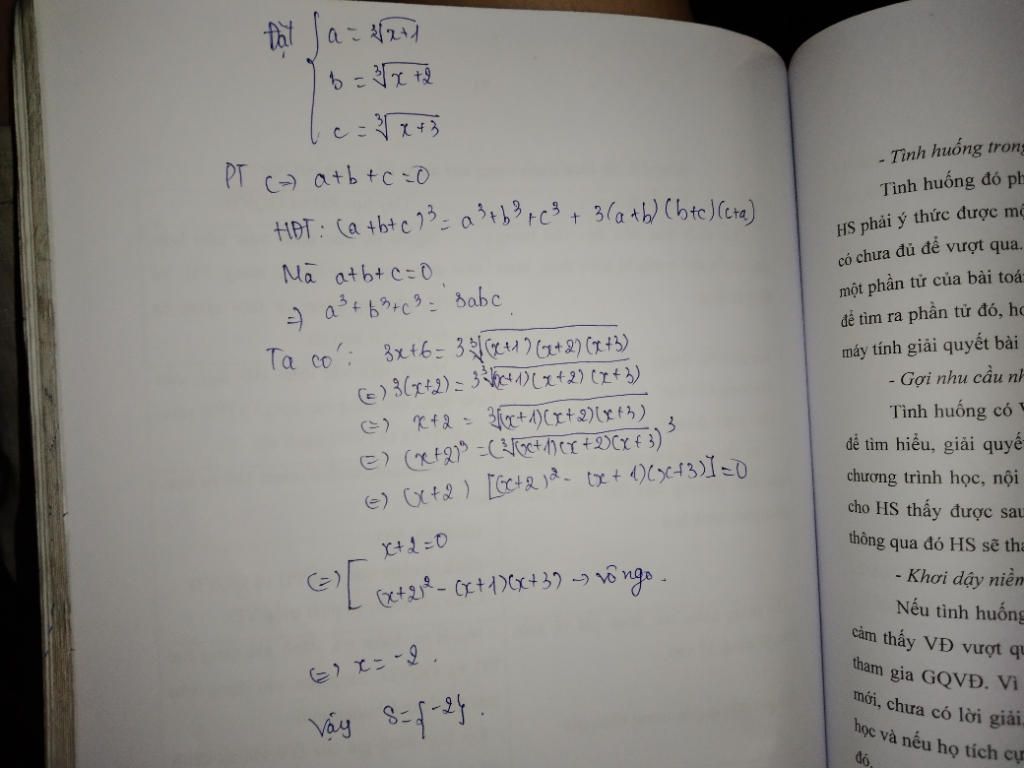 Đặt { a = ∛(x+1)
b = ∛(x+2)
c = ∛(x+3)
PT (=) a+b+c=0
HĐT: (a+b+c)³ = a³+b³+c³ + 3(a+b)(b+c)(c+a)
Mà a+b+c=0
=) a³+b³+c³ = 3abc
Ta có: 3x+6 = 3∛((x+1)(x+2)(x+3))
(=) 3(x+2) = 3∛((x+1)(x+2)(x+3))
(=) x+2 = ∛((x+1)(x+2)(x+3))
(=) (x+2)³ = (∛((x+1)(x+2)(x+3)))³
(=) (x+2) [(x+2)² - (x+1)(x+3)] = 0
(=) [ x+2=0
(x+2)² - (x+1)(x+3) → vô ngo.
(=) x = -2.
Vậy S = {-2}.
- Tình huống trong
Tình huống đó ph
HS phải ý thức được mộ
có chưa đủ để vượt qua.
một phần tử của bài toá
để tìm ra phần tử đó, ho
máy tính giải quyết bài
- Gợi nhu cầu nh
Tình huống có V
để tìm hiểu, giải quyế
chương trình học, nội
cho HS thấy được sau
thông qua đó HS sẽ tha
- Khơi dậy niềm
Nếu tình huống
cảm thấy VĐ vượt qu
tham gia GQVĐ. Vì
mới, chưa có lời giải
học và nếu họ tích cự
đó.